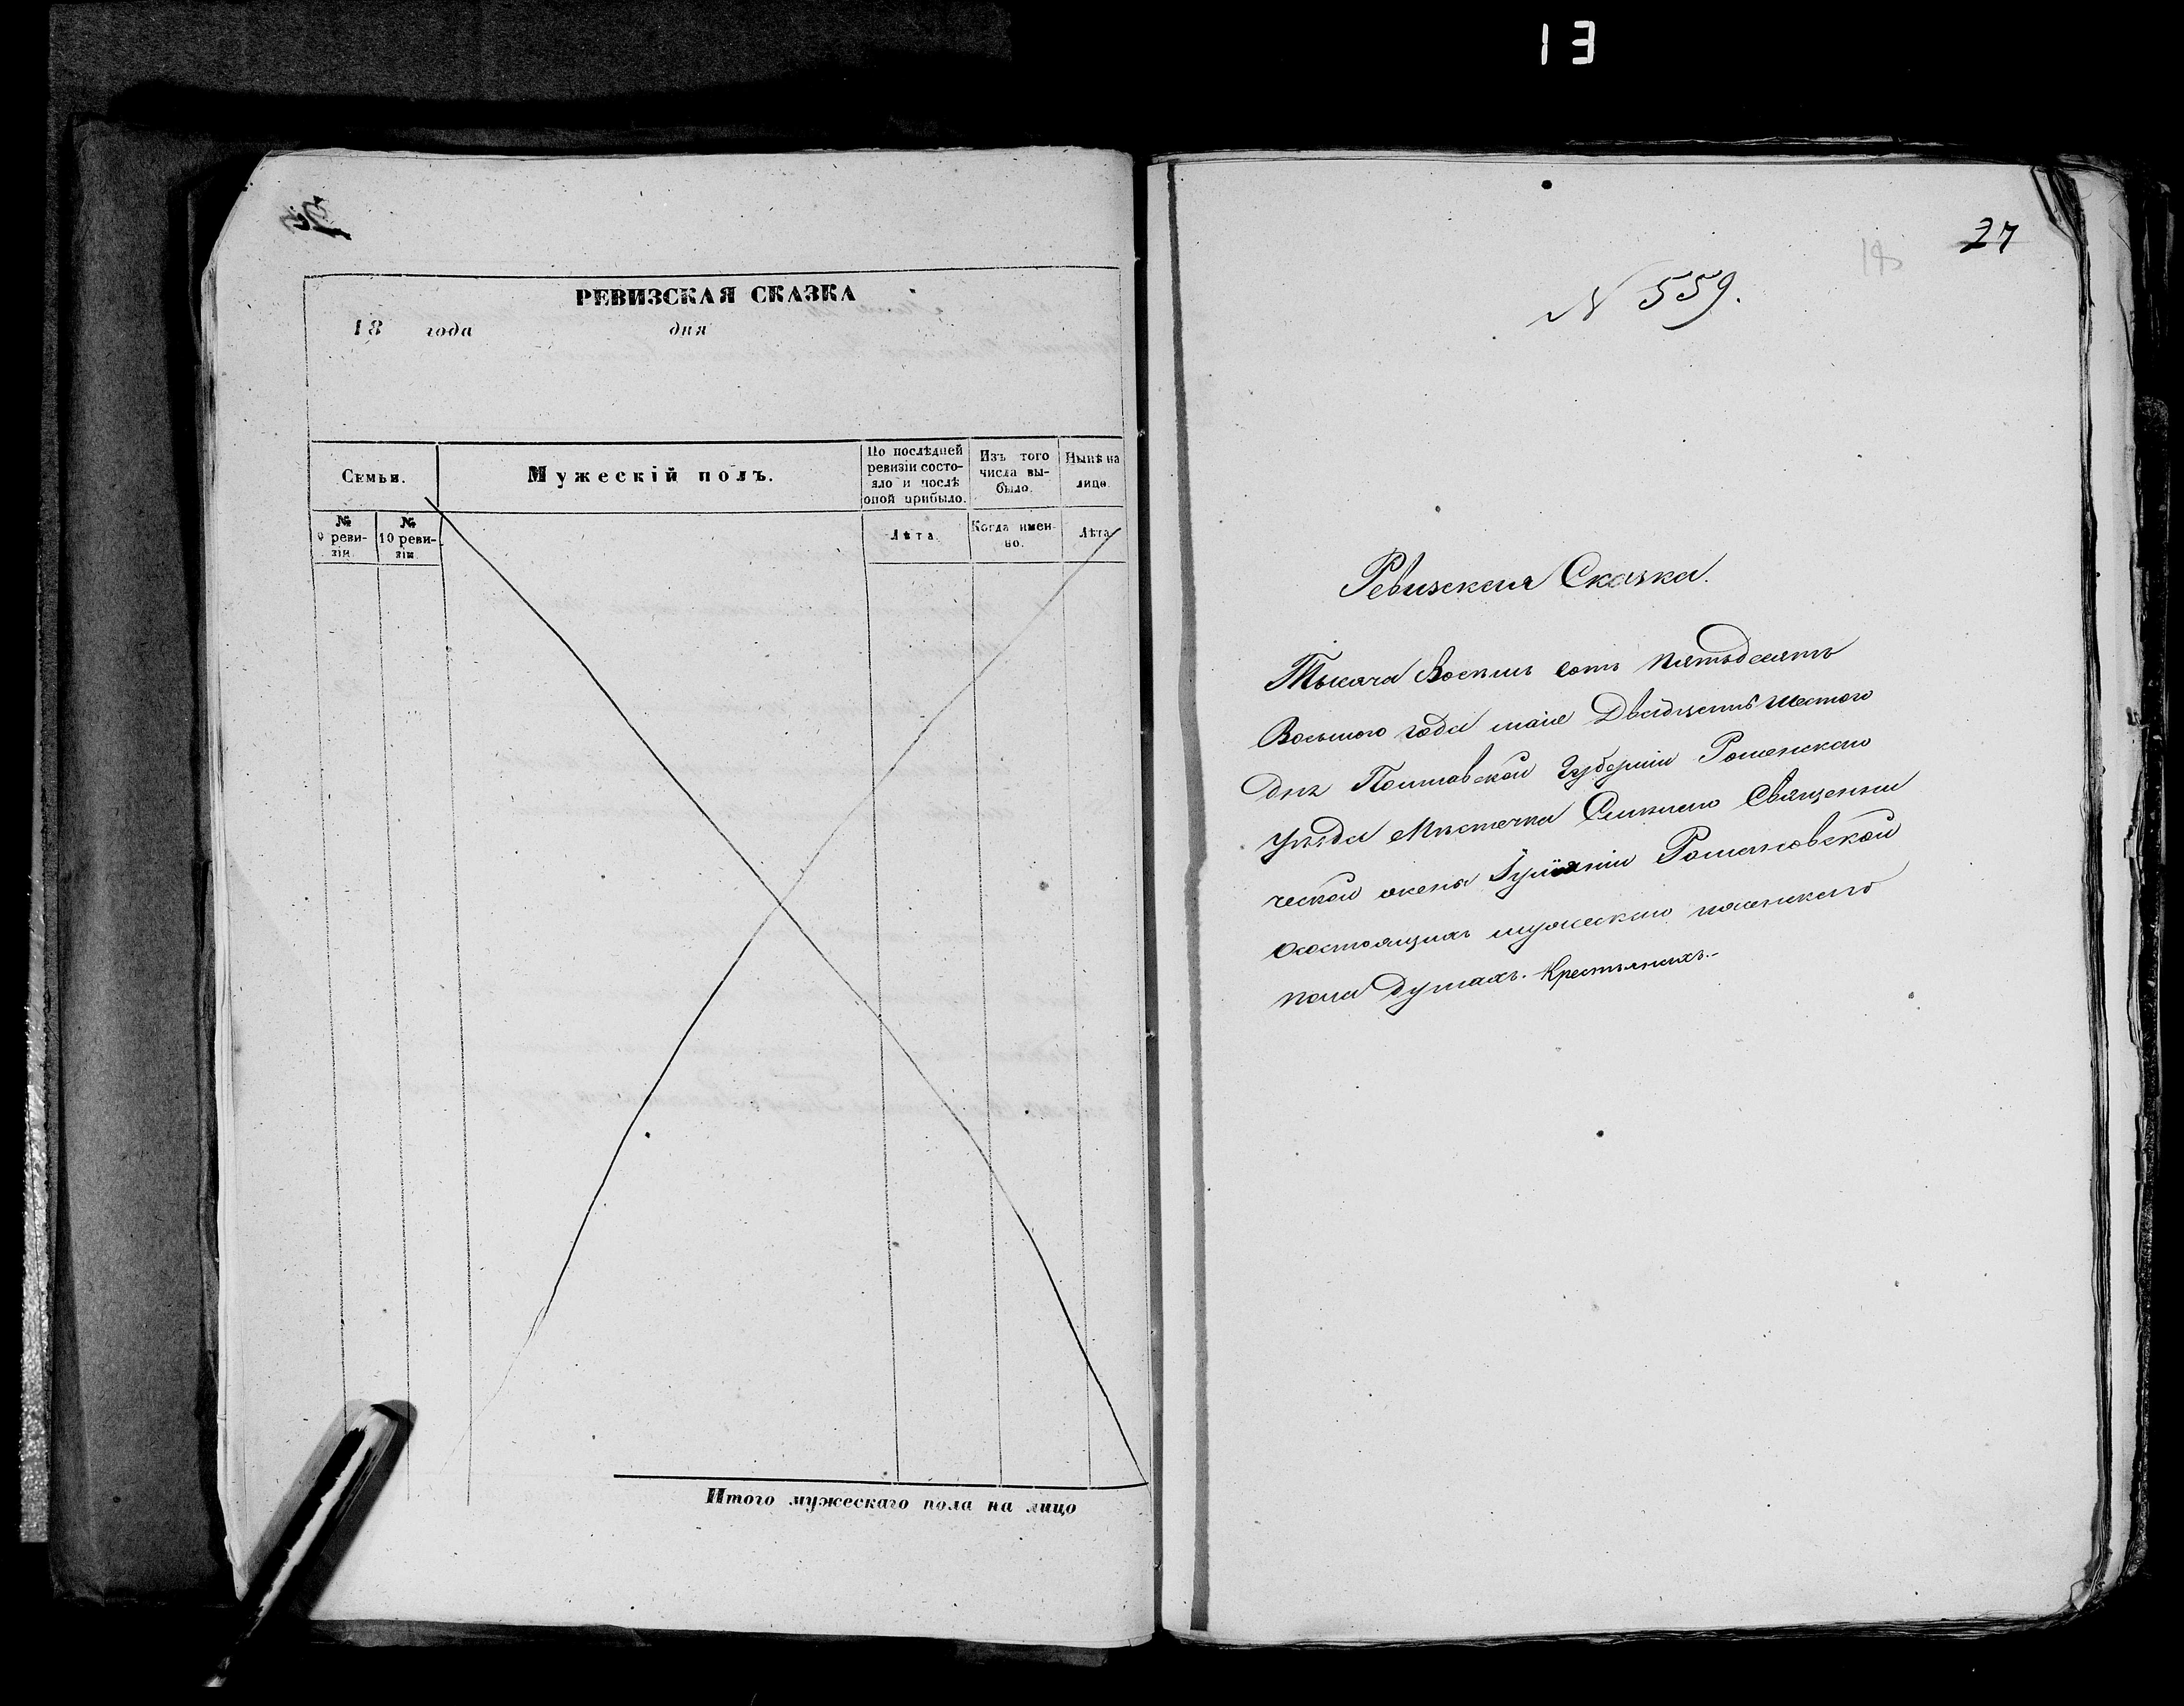 13
РЕВИЗСКАЯ СКАЗКА
18 года дня
Семьи.
Мужескій полъ.
По послѣдней ревизіи состояло и послѣ оной прибыло.
Изъ того числа выбыло.
Нынѣ на лицо.
№ 9 ревизіи
№ 10 ревизіи
Лѣта.
Когда именно.
Лѣта
Итого мужескаго пола на лицо
27
18
N 559.
Ревизская Сказка.
Тысяча Восемь сотъ пятьдесятъ
Восьмого года маія Двадцать шестого
дня Полтавской Губерніи Роменского
уѣзда Мѣстечка Смѣлого Священни
ческой жены Романовской
состоящихъ мужеского женского
пола душахъ. Крестьянахъ.-